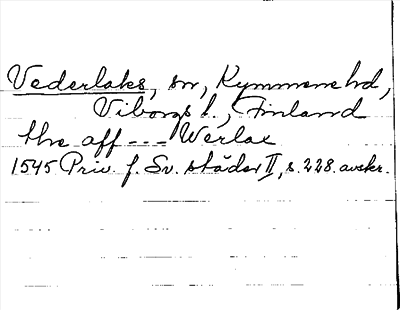 Vederlaks, sn, Kymmene hd,
Viborgs l., Finland
thr aff --- Werlax
1545 Priv. f. Sv. städer II, s. 228. avskr.